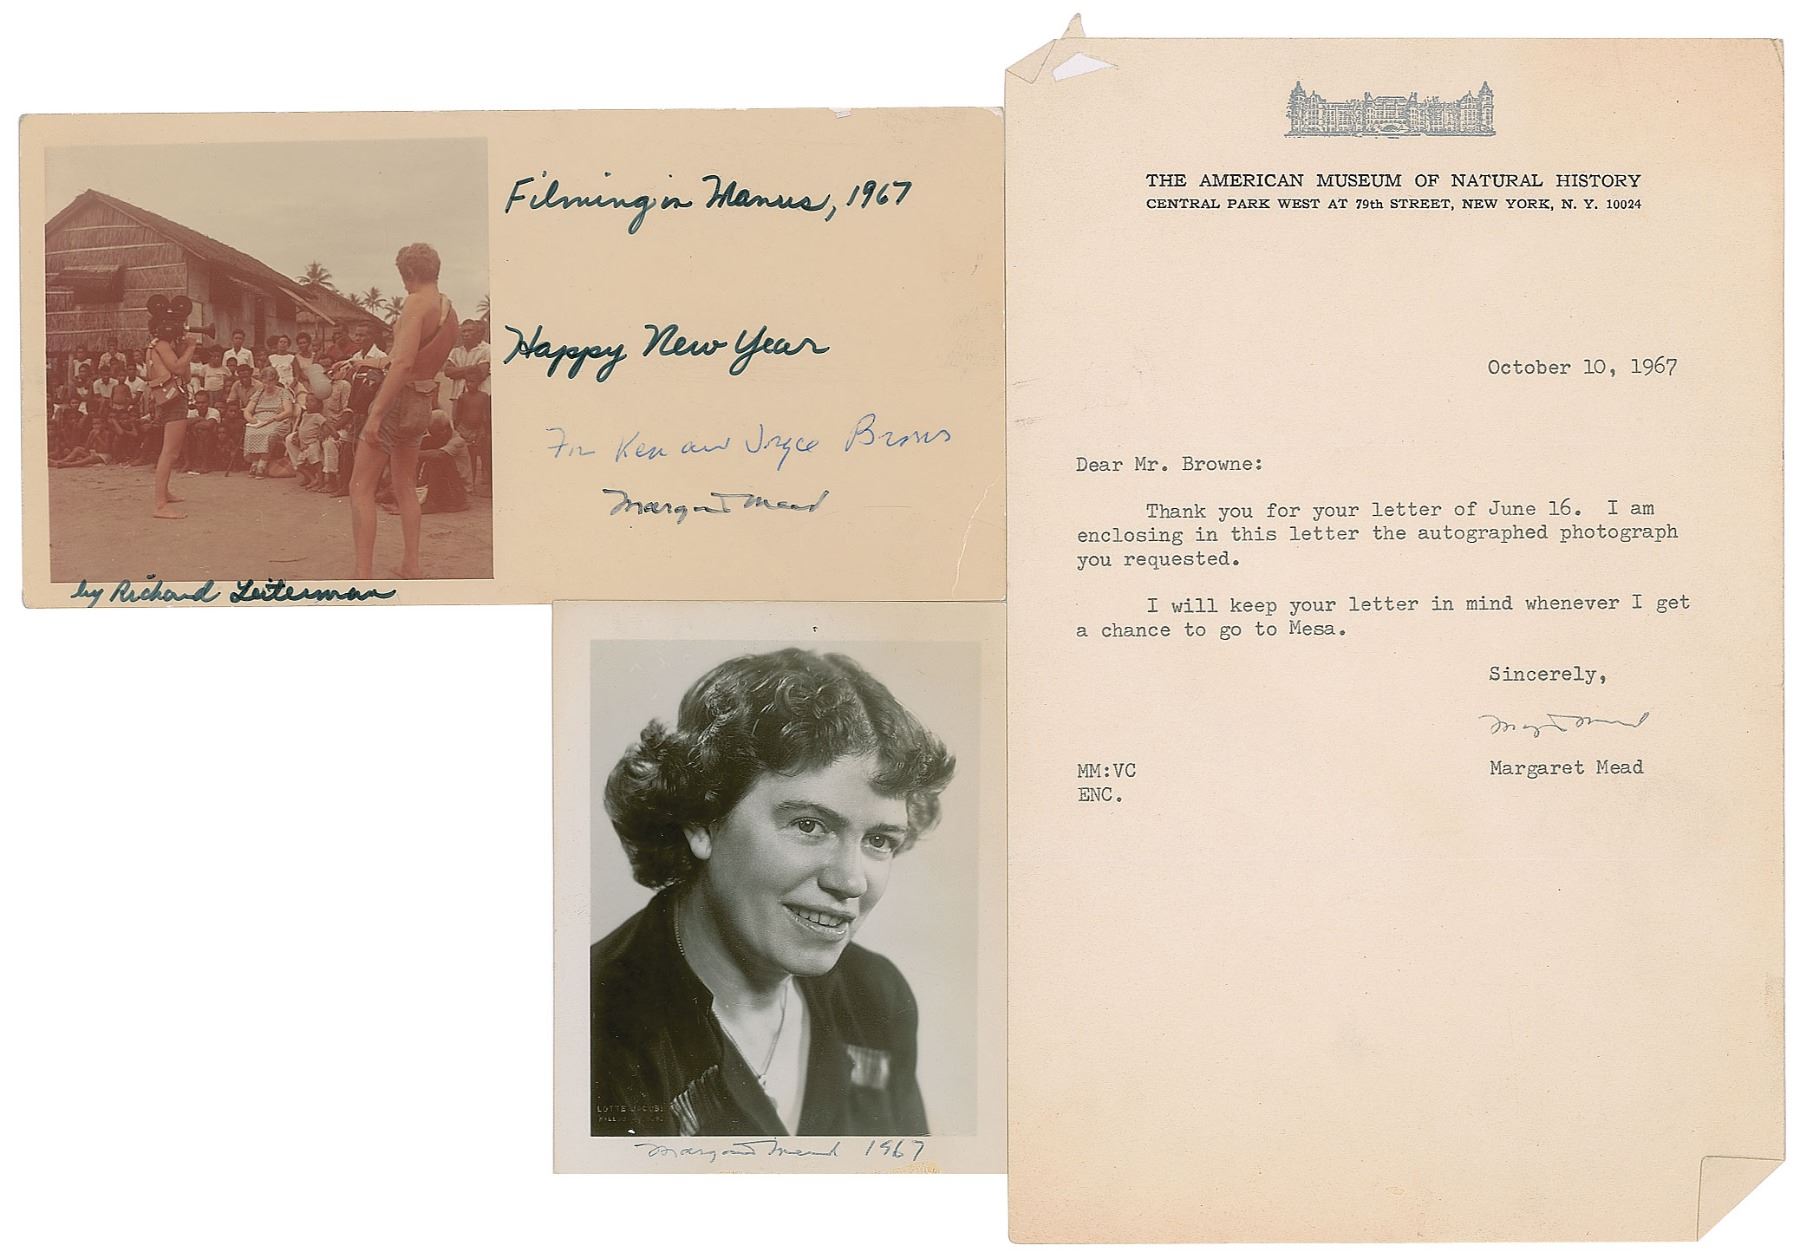 Filming in Manus, 1967
Happy New Year
For Ken and Joyce Browne
Margaret Mead
by Richard Leiterman
LOTTE JACOBI
Margaret Mead 1967
THE AMERICAN MUSEUM OF NATURAL HISTORY
CENTRAL PARK WEST AT 79th STREET, NEW YORK, N. Y. 10024
October 10, 1967
Dear Mr. Browne:
Thank you for your letter of June 16. I am
enclosing in this letter the autographed photograph
you requested.
I will keep your letter in mind whenever I get
a chance to go to Mesa.
Sincerely,
Margaret Mead
Margaret Mead
MM:VC
ENC.